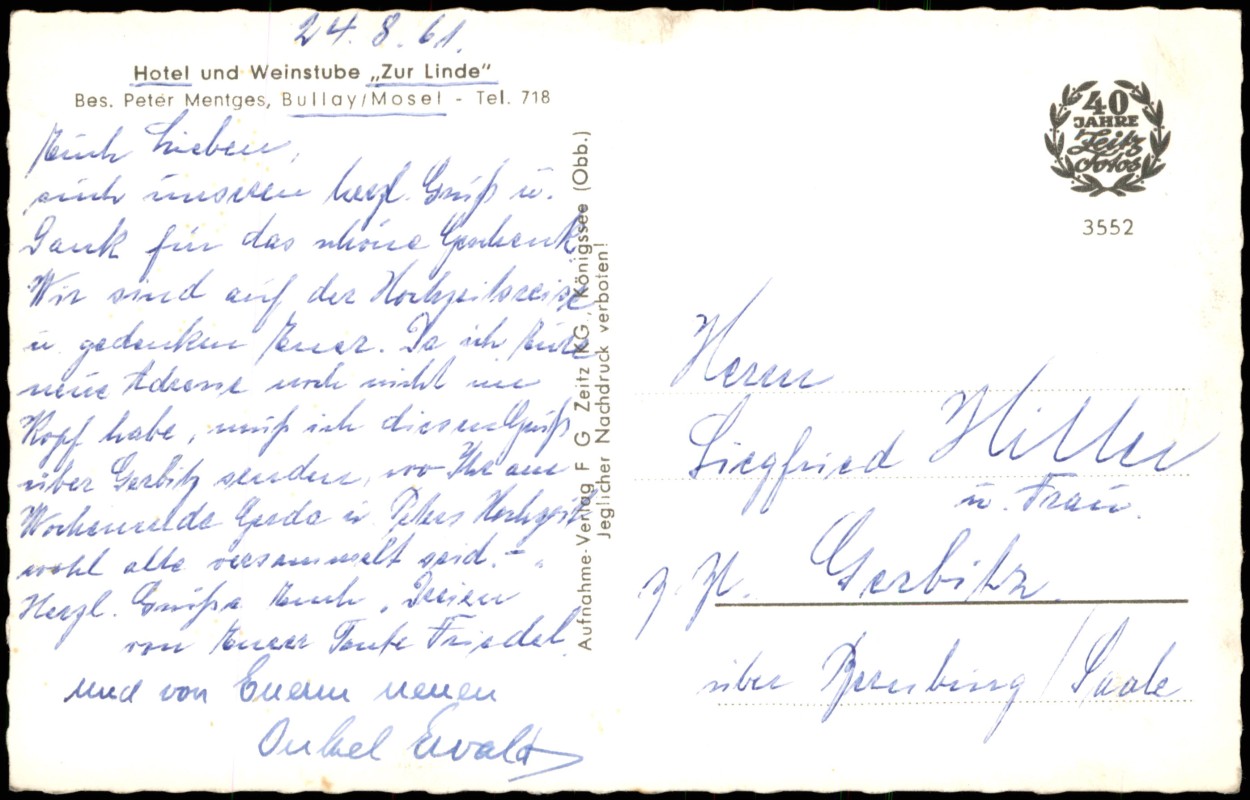 24. 8. 61.
Hotel und Weinstube „Zur Linde"
Bes. Peter Mentges, Bullay/Mosel - Tel. 718
Euch Lieben,
auch unseren herzl. Gruß u.
Dank für das schöne Geschenk.
Wir sind auf der Hochzeitsreise
u. gedenken Euer. Da ich Eure
neue Adresse noch nicht im
Kopf habe, muß ich diesen Gruß
über Gerbitz senden, wo Ihr am
Wochenende Gerda u. Peters Hochzeit
wohl alle versammelt seid. -
Herzl. Grüße Euch Dreien
von Eurer Tante Friedel
und von Euerm neuen
Onkel Ewald
Aufnahme-Verlag F G Zeitz KG, Königssee (Obb.)
Jeglicher Nachdruck verboten!
40
JAHRE
Zeitz
Fotos
3552
Herrn
Siegfried Hiller
u. Frau.
z. Zt. Gerbitz
über Bernburg/Saale